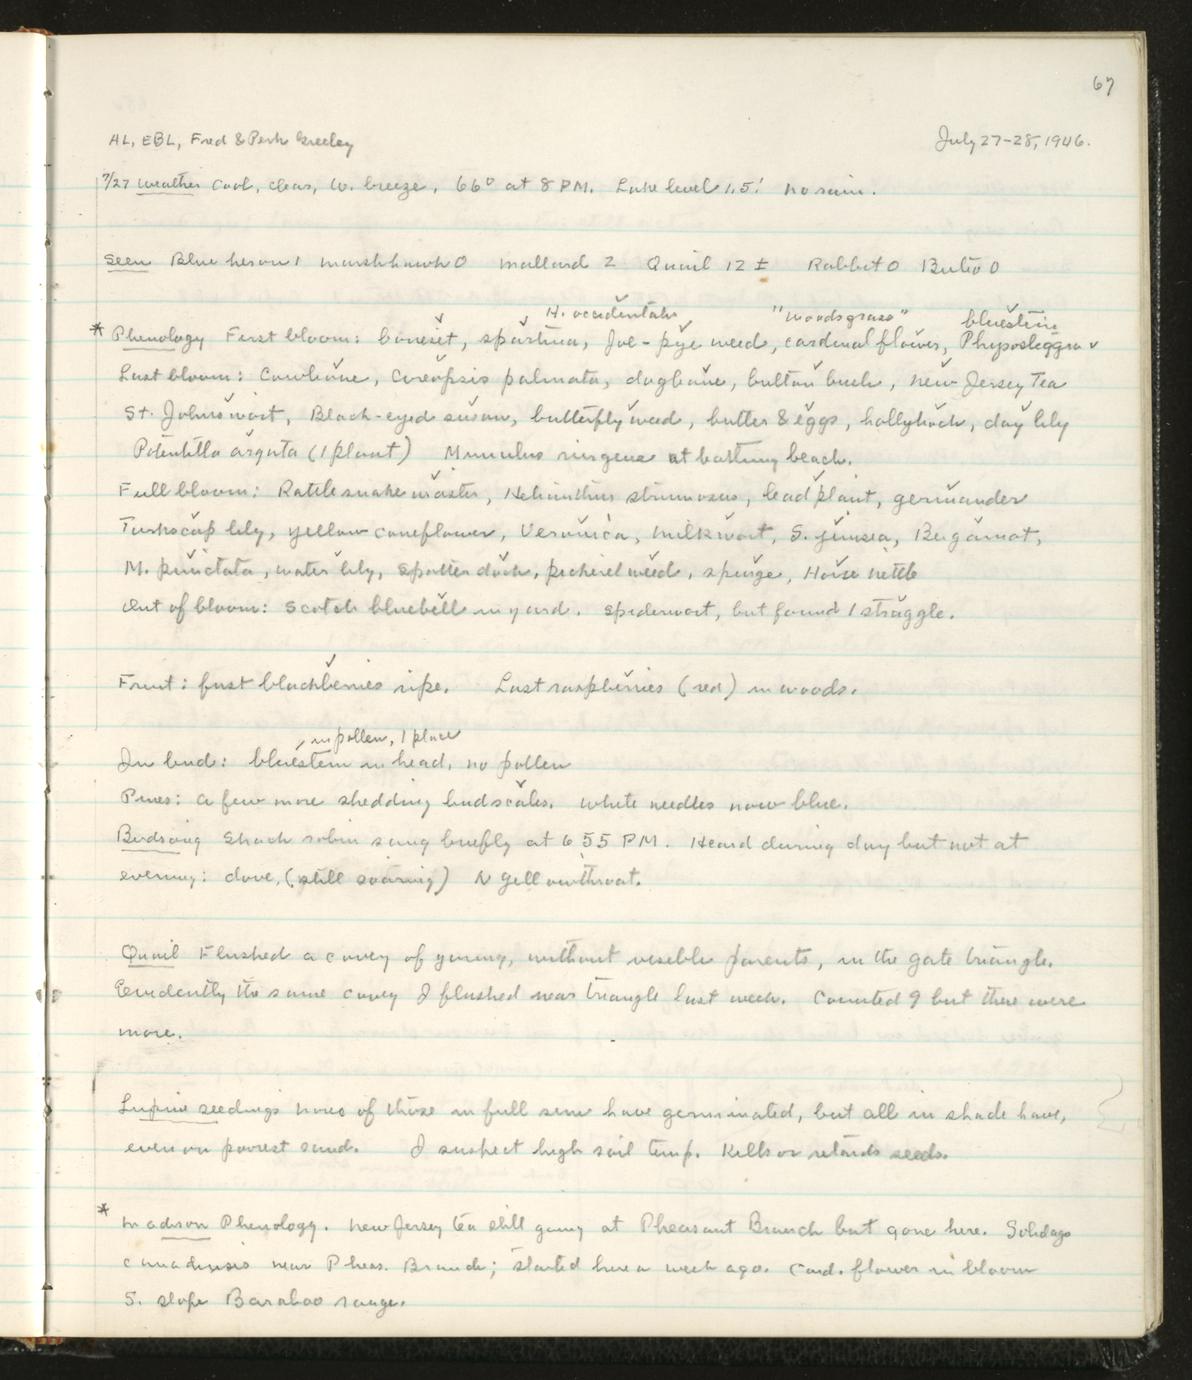 67
AL, EBL, Fred & Greeley July 27-28, 1946.
7/27 Weather Cool, clear, W. breeze, 66° at 8 PM. Lake level 1.5! No rain.
Seen Blue heron 1 Marsh hawk 0 Mallard 2 Quail 12 ± Rabbit 0 Buteo 0
H. occidentalis "Woodsgrass" bluestem
* Phenology First bloom: boneset, spartina, Joe-pye weed, cardinal flower,
Last bloom: Cowbane, Coreopsis palmata, dogbane, button bush, New Jersey Tea
St. Johnswort, Black-eyed susan, butterfly weed, butter & eggs, hollyhock, day lily
Potentilla arguta (1 plant) Mimulus ringens at bathing beach.
Full bloom: Rattlesnake master, Helianthus strumosus, lead plant, germander
Turkscap lily, yellow coneflower, Veronica, Milkwort, S. juncea, Bergamot,
M. punctata, water lily, spatterdock, pickerel weed, spurge, Horse nettle
Out of bloom: Scotch bluebell in yard. Spiderwort, but found 1 straggle.
Fruit: first blackberries ripe. Last raspberries (red) in woods.
, in pollen, 1 place
In bud: bluestem in head, no pollen
Pines: a few more shedding budscales. White needles now blue.
Birdsong Shack robin sang briefly at 6 55 PM. Heard during day but not at
evening: dove, (still soaring) N yellowthroat.
Quail Flushed a covey of young, without visible parents, in the gate triangle.
Evidently the same covey I flushed near triangle last week. Counted 9 but there were
more.
Lupine seedings None of those in full sun have germinated, but all in shade have,
even on poorest sand. I suspect high soil temp. kills or retards seeds.
* Madison Phenology. New Jersey tea still going at Pheasant Branch but gone here. Solidago
canadensis near Pheas. Branch; started here a week ago. Card. flower in bloom
S. slope Baraboo range.